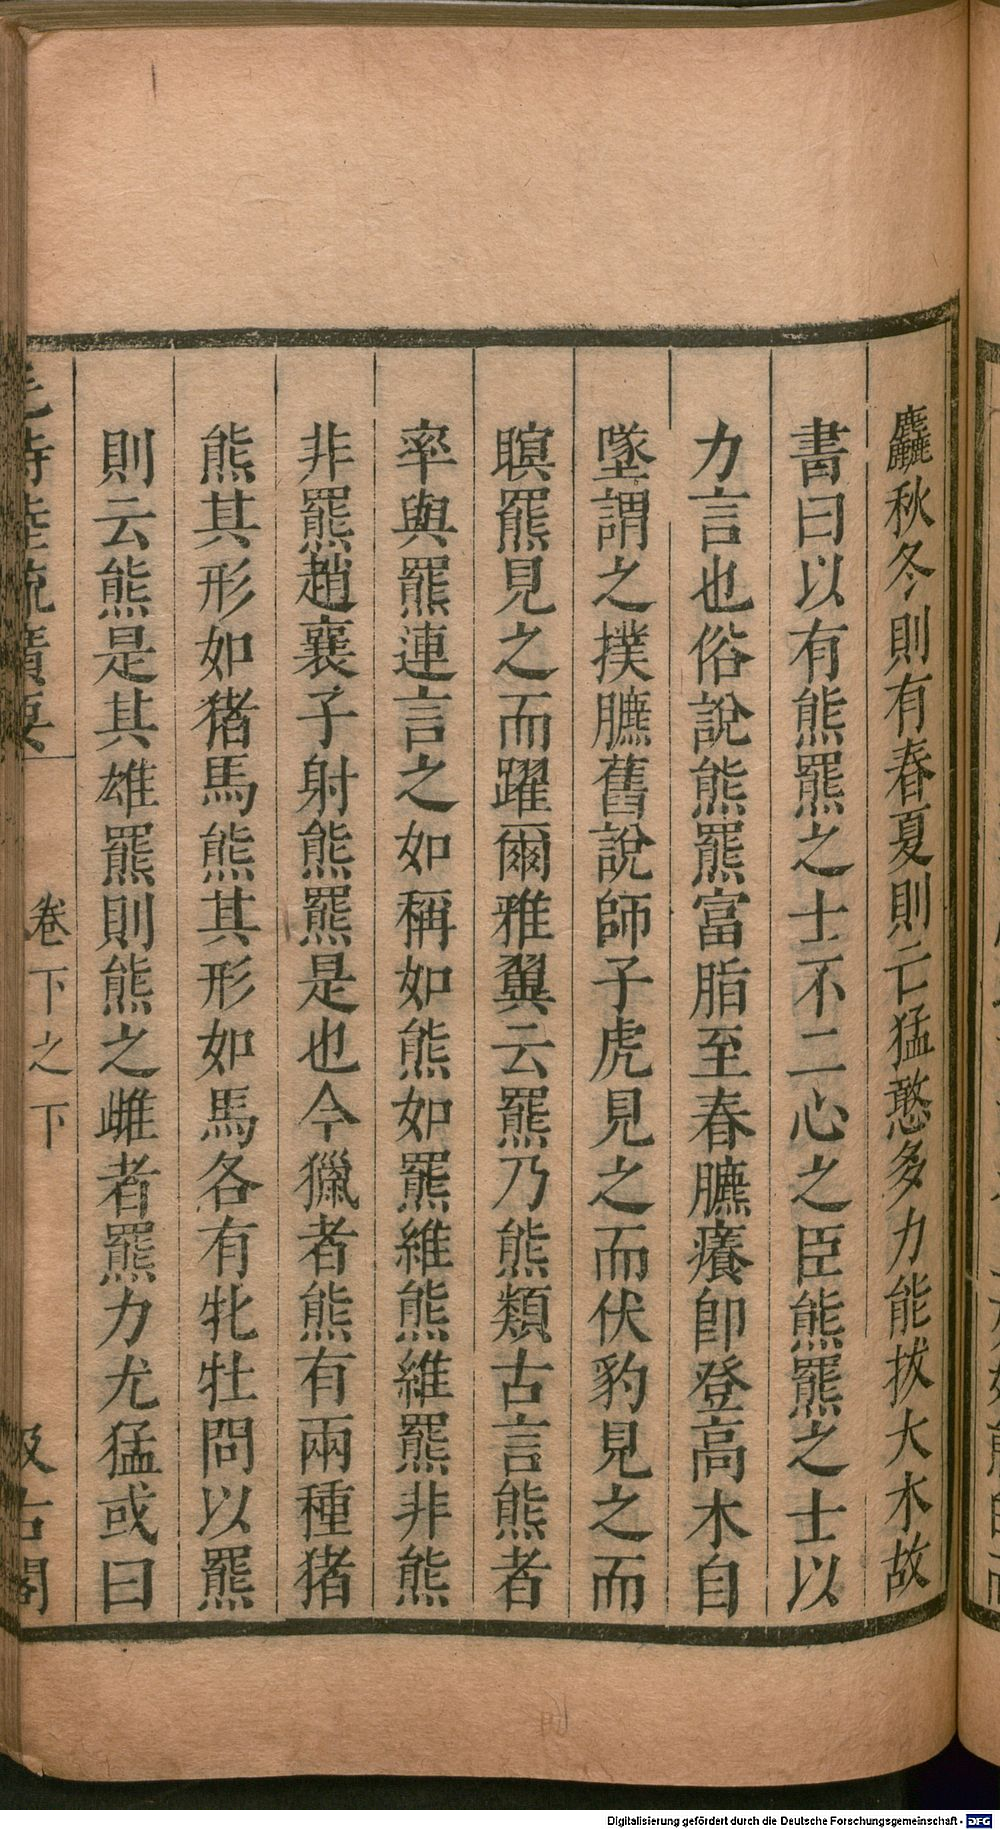 麤秋冬則有春夏則亡猛憨多力能拔大木故
書曰以有熊羆之士不二心之臣熊羆之士以
力言也俗說熊羆富脂至春臕癢卽登高木自
墜謂之撲臕舊說師子虎見之而伏豹見之而
瞑羆見之而躍爾雅翼云羆乃熊類古言熊者
率與羆連言之如稱如熊如羆維熊維羆非熊
非羆趙襄子射熊羆是也今獵者熊有兩種猪
熊其形如猪馬熊其形如馬各有牝牡問以羆
則云熊是其雄羆則熊之雌者羆力尤猛或曰
毛詩陸疏廣要 卷下之下 汲古閣
Digitalisierung gefördert durch die Deutsche Forschungsgemeinschaft - DFG